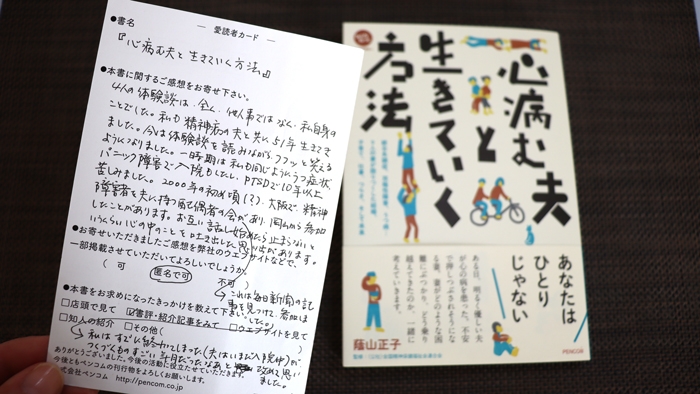 ― 愛読者カード ―
●書名
『心病む夫と生きていく方法』
●本書に関するご感想をお寄せ下さい。
4人の体験談は、全く、他人事ではなく、私自身の
ことでした。私も精神病の夫と共に51年生きてき
ました。今は体験談を読みながらフフッと笑える
ようになりました。一時期は私も同じようにうつ症状、
パニック障害で入院もしたし、PTSDで10年以上
苦しみました。2000年の初め頃(?)、大阪で精神
障害者を夫に持つ配偶者の会があり、岡山から参加
したことがあります。お互い話し始めたら止まらないと
いうくらい心の中のことを吐き出した思い出があります。
●お寄せいただきましたご感想を弊社のウェブサイトなどで、
一部掲載させていただいてよろしいでしょうか。
( 可 匿名で可 不可 )
→これは毎日新聞の記
事を見つけて、参加しま
した。)
●本書をお求めになったきっかけを教えて下さい。
□店頭で見て ☑書評・紹介記事をみて □ウェブサイトを見て
□知人の紹介 □その他( )
→私はすでに
(夫はいまだ入院中)が、
つくづくものすごい年月だったなあと
改めて思い
ました。
ありがとうございました。今後の活動に役立たせていただきます。
今後ともペンコムの刊行物をよろしくお願いします。
株式会社ペンコム http://pencom.co.jp
心病む夫と
生きていく
方法
あなたは
ひとり
じゃない
ある日、明るく優しい夫
が心の病を患った。不安
で押しつぶされそうにな
る妻。妻がどのような困
難にぶつかり、どう乗り
越えてきたのか、一緒に
考えていきます。
蔭山正子
PENCOM